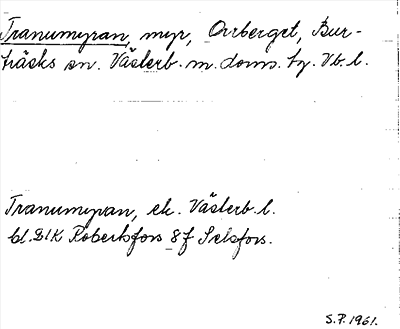 Tranumyran, myr, Ovrberget, Bur-
träsks sn. Västerb. m. doms. tg. Vb. l.
Tranumyran, ek. Västerb. l.
bl. 21K Robertsfors 8f Selsfors.
S.P. 1961.